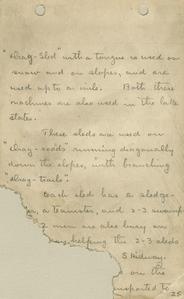 "Drag-sled" with a tongue is used on
snow and on slopes, and are
used up to a mile. Both these
machines are also used in the lake
states.
These sleds are used on
"dray-roads" running diagonally
down the slopes, with branching
"drag-trails".
Each sled has a sledge-
a teamster, and 2-3 swamp
men are also busy on
helping the 2-3 sleds
on the
nsported to
25